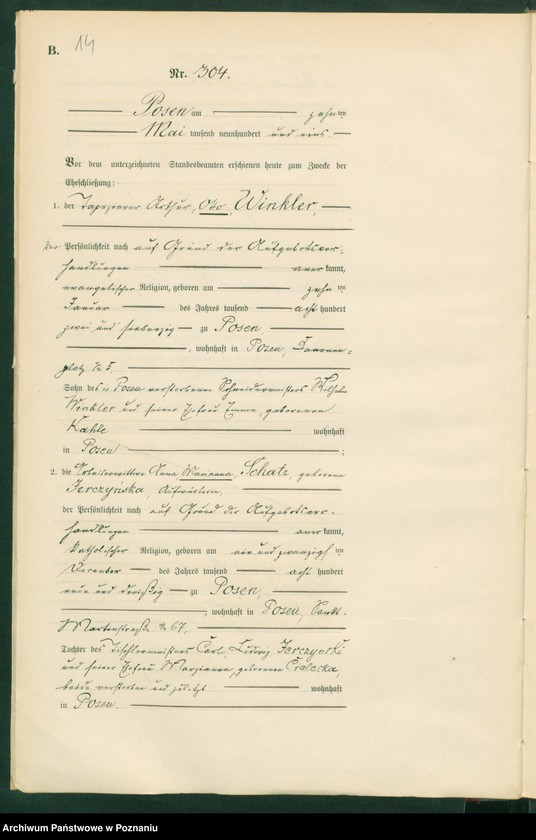 B. 14
Nr. 304.
Posen am zehnten
Mai tausend neunhundert und eins.
Vor dem unterzeichneten Standesbeamten erschienen heute zum Zwecke der
Eheschließung:
1. der Tapezierer Arthur, Otto, Winkler,
der Persönlichkeit nach auf Grund der Aufgebotsver-
handlungen anerkannt,
evangelischer Religion, geboren am zehnten
Januar des Jahres tausend acht hundert
zwei und siebenzig zu Posen,
, wohnhaft in Posen,
platz № 5,
Sohn des in Posen verstorbenen Schneidermeisters Wilhelm
Winkler und seiner Ehefrau Emma, geborenen
Kahle wohnhaft
in Posen;
2. die Arbeiterwittwe Anna Marianna, Schatz, geborene
Jerczyńska, Aufwärterin,
der Persönlichkeit nach auf Grund der Aufgebotsver-
handlungen anerkannt,
katholischer Religion, geboren am ein und zwanzigsten
des Jahres tausend acht hundert
neun und dreißig zu Posen,
; wohnhaft in Posen, Sankt-
Martinstraße № 67,
Tochter des Tischlermeisters Carl Ludwig Jerczynski
und seiner Ehefrau Marzianna, geborenen Cielecka,
beide verstorben und zuletzt wohnhaft
in Posen.
Archiwum Państwowe w Poznaniu